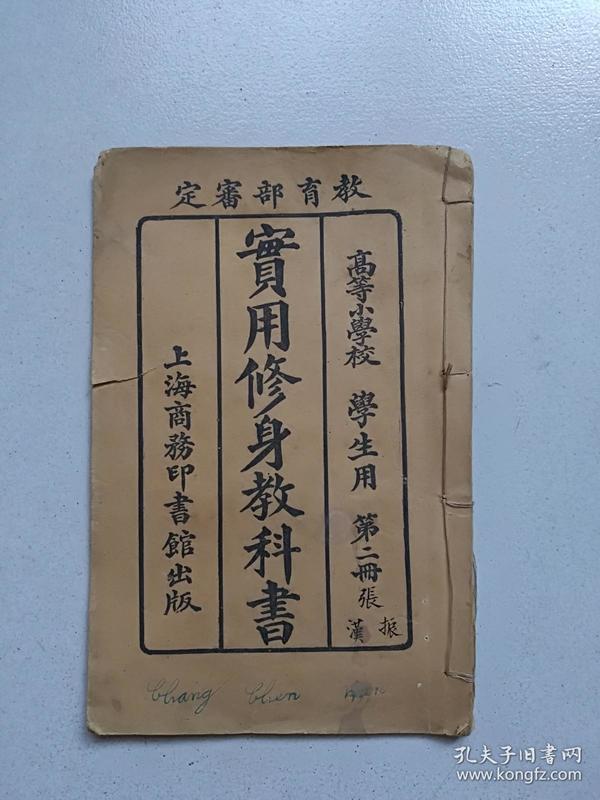 教育部審定
高等小學校 學生用 第二冊
張振漢
實用修身教科書
上海商務印書館出版
Chang Chen Han
孔夫子旧书网
www.kongfz.com